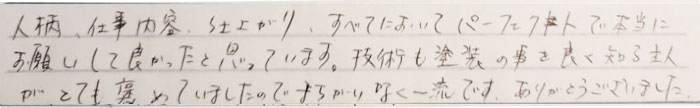 人柄、仕事内容、仕上がり、すべてにおいてパーフェクトで本当に
お願いして良かったと思っています。技術も塗装の事を良く知る主人
がとても褒めていましたのでまちがいなく一流です。ありがとうございました。